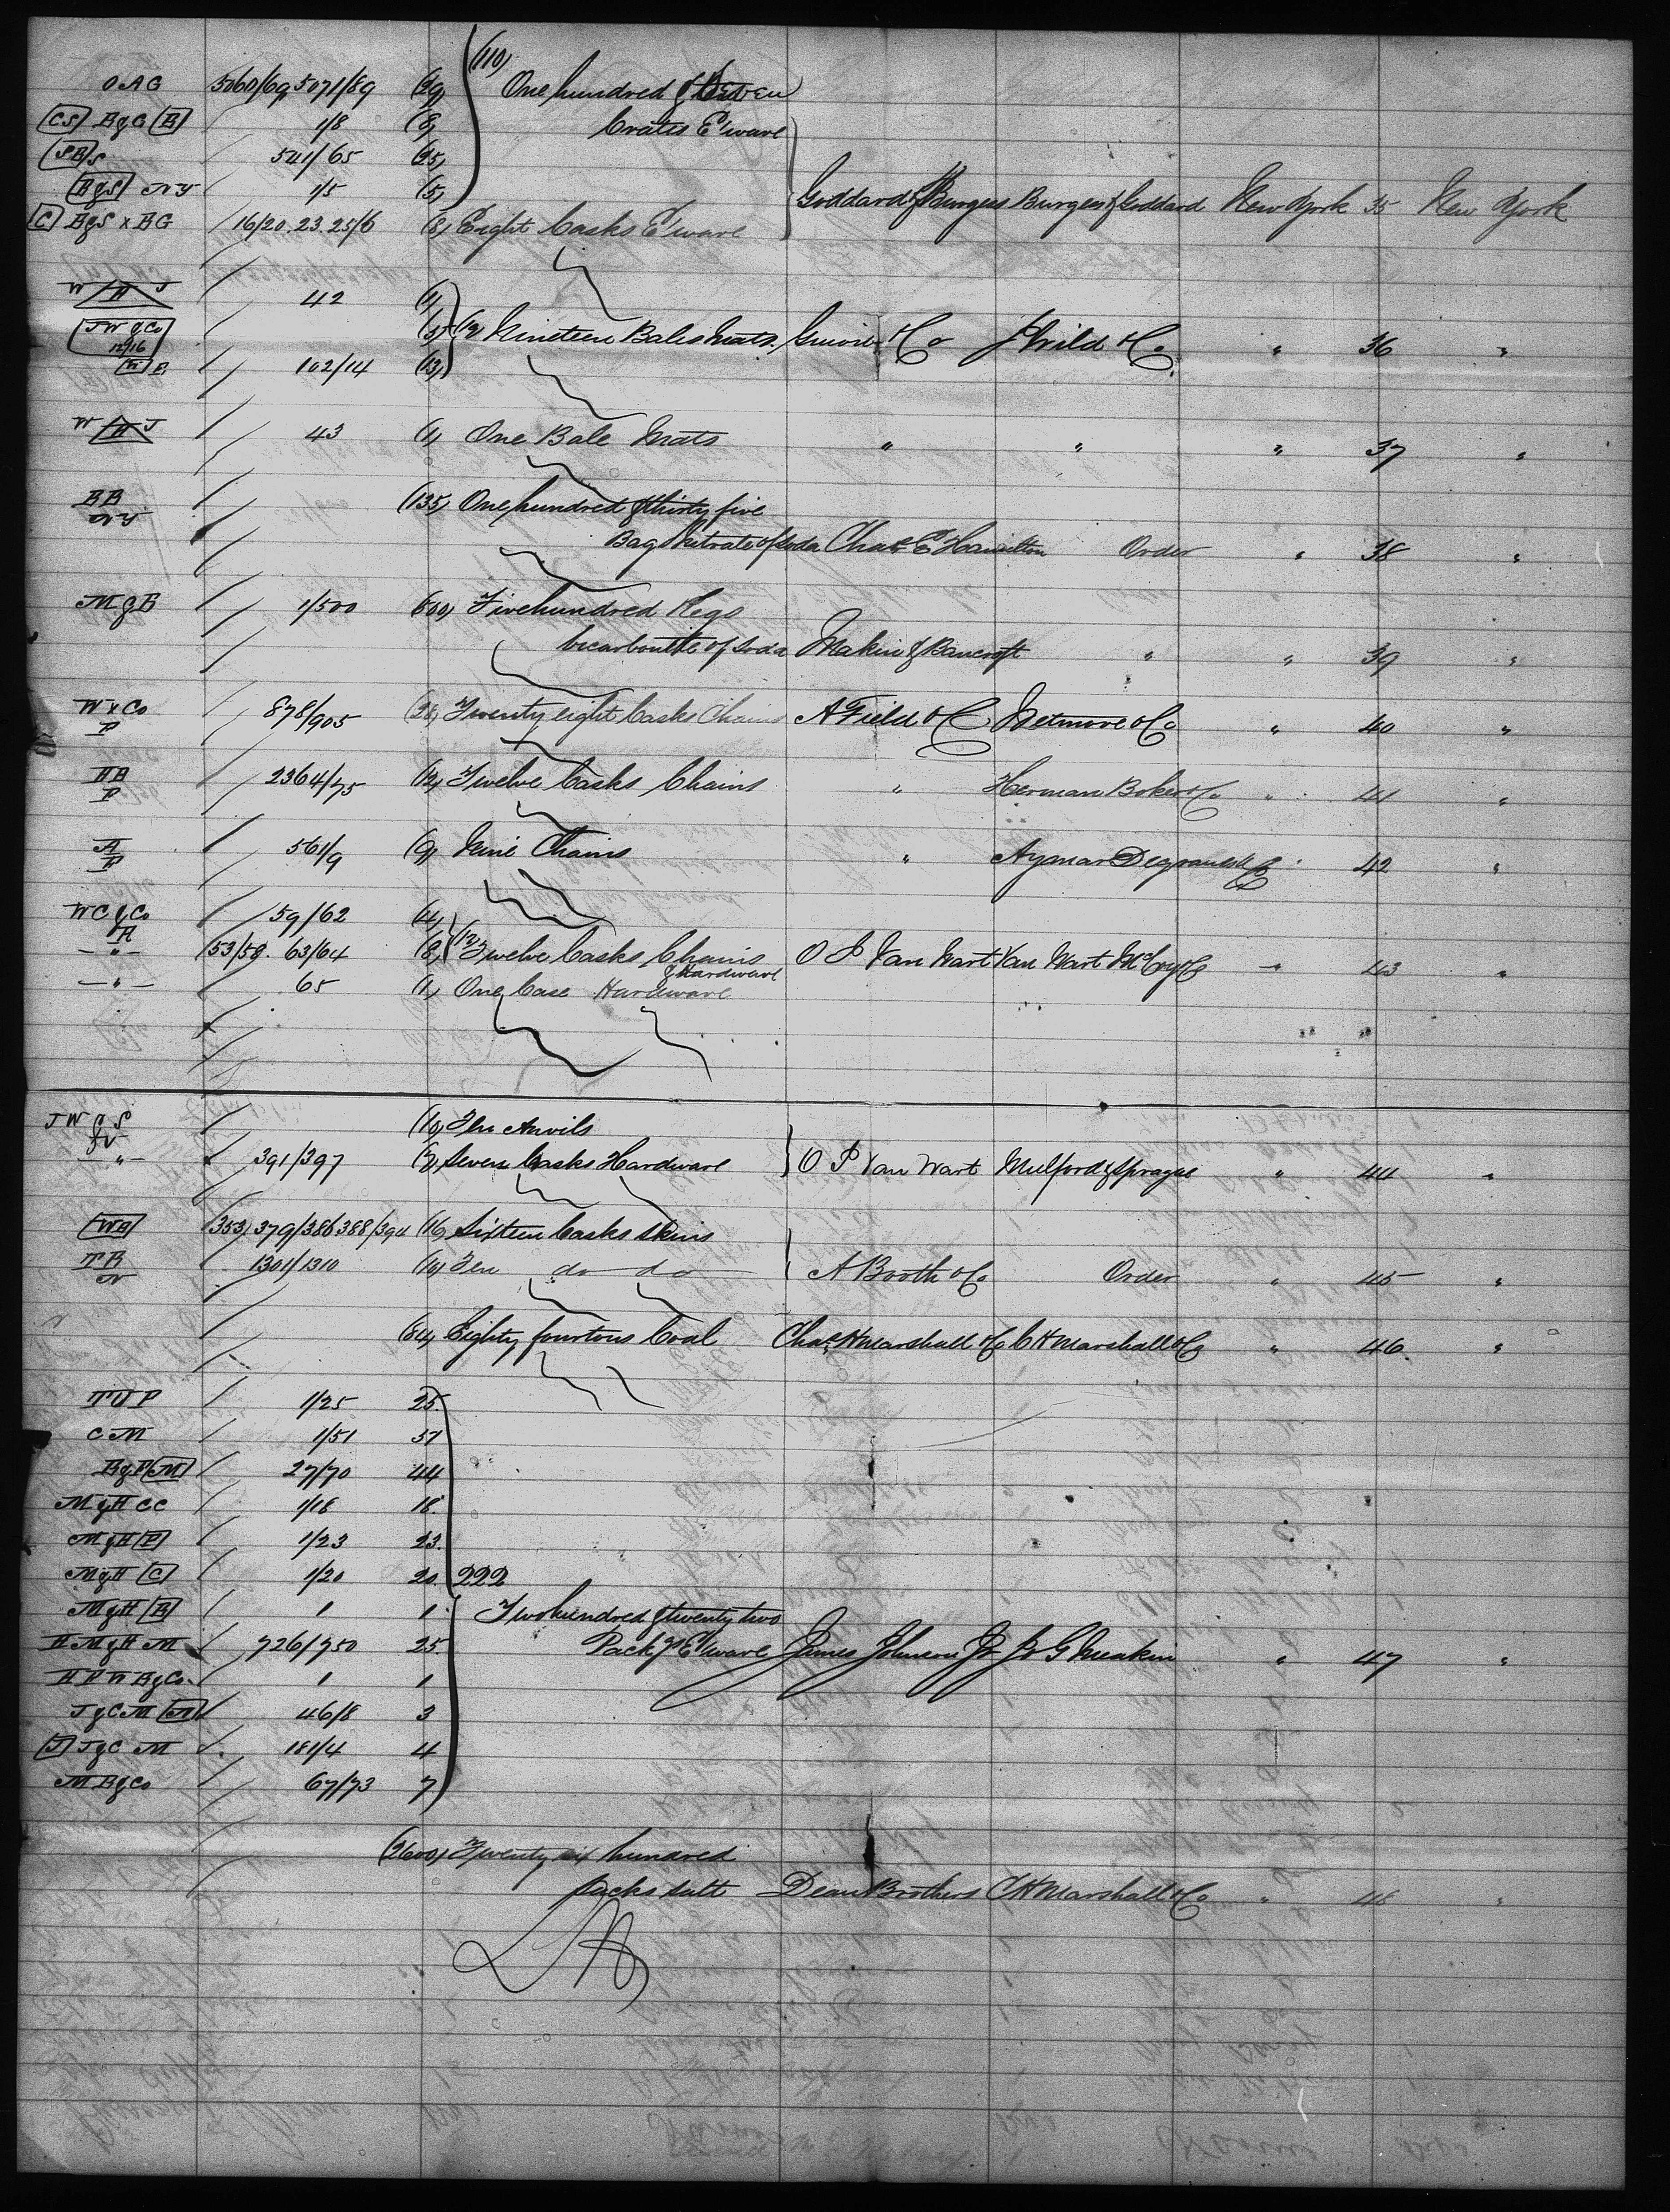 (110)
OAG 5060/69 5071/89 (29) One hundred & ten
CS B&G B 1/8 (8) Crates E'ware
SB S 541/65 (25)
B&S NY 1/5 (5)
Goddard & Burgess Burgess & Goddard New York 35 New York
C B&S x BG 16/20. 23. 25/6 (8) Eight Casks E'ware
W H J 42 (1)
JW & Co 12/16 (5) (19) Nineteen Bales Mats. & Co J Wild & Co " 36 "
P. 102/14 (13)
W H J 43 (1) One Bale Mats " " " 37 "
BB NY (135) One hundred & thirty five
Bags Nitrate of Soda Chas E Hamilton Order " 38 "
M & B 1/500 (500) Five hundred Kegs
bicarbonate of Soda Makin & Bancroft " " 39 "
W & Co P 878/905 (28) Twenty eight Casks Chains A Field & Co Wetmore & Co " 40 "
HB P 2364/75 (12) Twelve Casks Chains " Herman Boker & Co " 41 "
A P 561/9 (9) Nine Chains " Aymar & Co " 42 "
WC & Co 59/62 (4)
A
-"- 53/58. 63/64 (8) (12) Twelve Casks Chains O P Van Wart Van Wart McCoy & Co " 43 "
& Hardware
-"- 65 (1) One Case Hardware
JW & S (10) Ten Anvils
V
-"- 391/397 (7) Seven Casks Hardware O P Van Wart Mulford & Sprague " 44 "
WB 353, 379/386 388/394 (16) Sixteen Casks Skins
TB N 1301/1310 (10) Ten do do A Booth & Co Order " 45 "
(84) Eighty four tons Coal Chas H Marshall & Co C H Marshall & Co " 46 "
TUP 1/25 25.
CM 1/51 51
B&P M 27/70 44
M&H CC 1/18 18.
M&H P 1/23 23.
M&H C 1/20 20. 222
M&H B 1 1
Two hundred & twenty two
H M&H M 726/750 25. Packgs E'ware James Johnson Jr J & G Meakin " 47 "
B & Co. 1 1
J&C M 46/8 3
J J&C M 181/4 4
M B & Co 67/73 7
(2600) Twenty six hundred
Sacks salt Dean Brothers C H Marshall & Co " 48 "